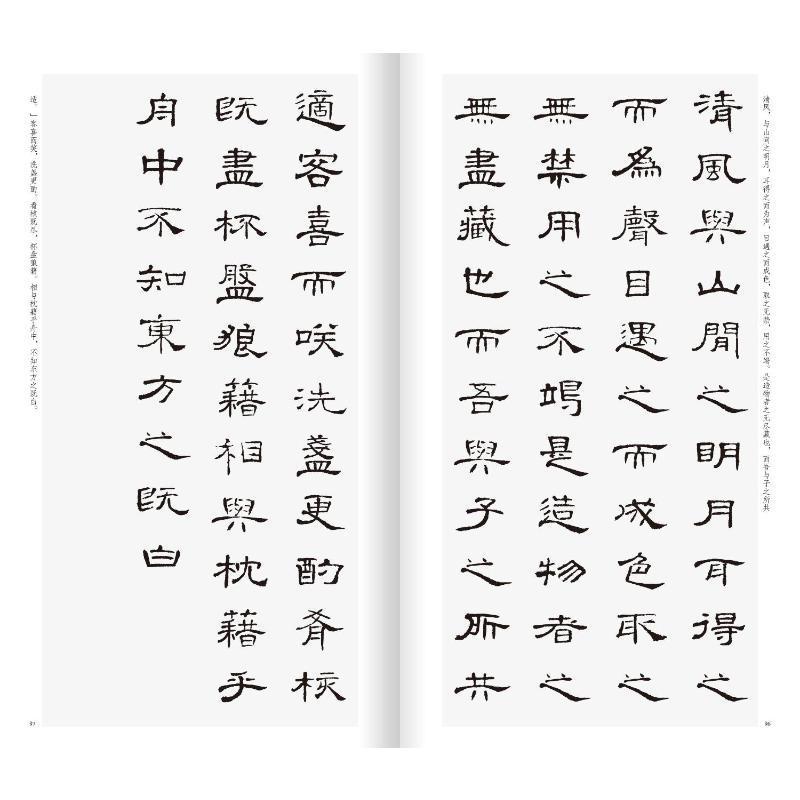 清风，与山间之明月，耳得之而为声，目遇之而成色，取之无禁，用之不竭。是造物者之无尽藏也，而吾与子之所共
清風與山閒之眀月耳得之
而為聲目遇之而成色取之
無禁用之不竭是造物者之
無盡藏也而吾與子之所共
適客喜而咲洗盞更酌肴核
既盡杯盤狼藉相與枕藉乎
舟中不知東方之既白
适。」客喜而笑，洗盏更酌。肴核既尽，杯盘狼藉。相与枕藉乎舟中，不知东方之既白。